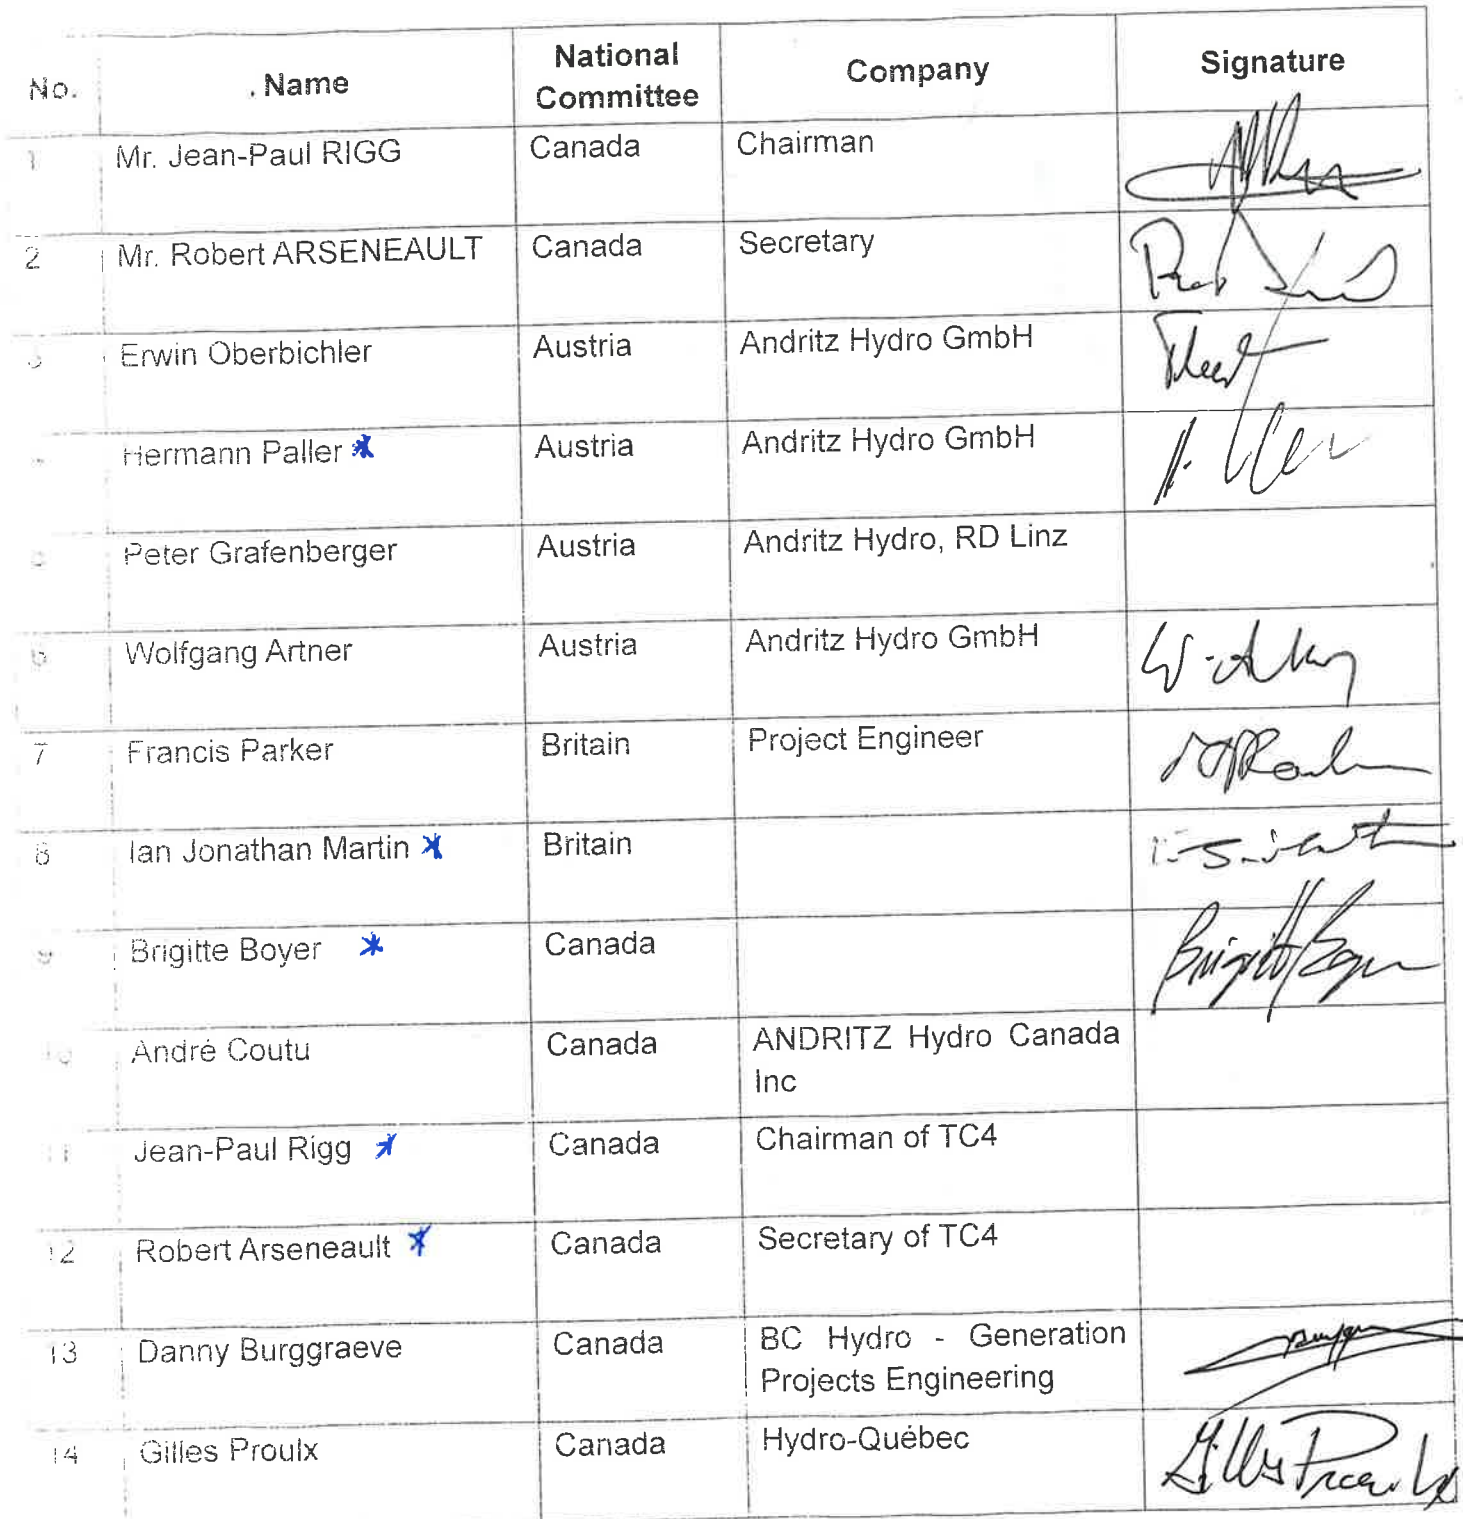 No. Name National Committee Company Signature
1 Mr. Jean-Paul RIGG Canada Chairman
2 Mr. Robert ARSENEAULT Canada Secretary
3 Erwin Oberbichler Austria Andritz Hydro GmbH
Hermann Paller * Austria Andritz Hydro GmbH
Peter Grafenberger Austria Andritz Hydro, RD Linz
6 Wolfgang Artner Austria Andritz Hydro GmbH
7 Francis Parker Britain Project Engineer
8 Ian Jonathan Martin * Britain
9 Brigitte Boyer * Canada Brigitte Boyer
10 André Coutu Canada ANDRITZ Hydro Canada
Inc
11 Jean-Paul Rigg * Canada Chairman of TC4
12 Robert Arseneault * Canada Secretary of TC4
13 Danny Burggraeve Canada BC Hydro - Generation
Projects Engineering
14 Gilles Proulx Canada Hydro-Québec Gilles Proulx